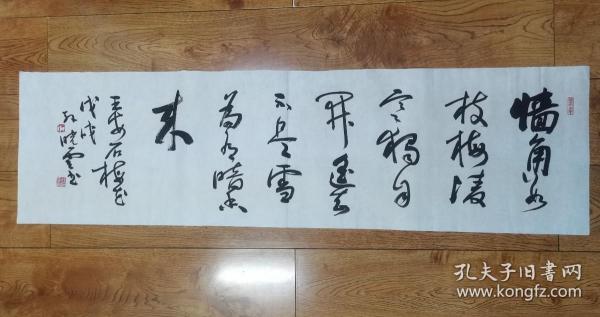 墙角数
枝梅凌
寒獨自
開遥知
不是雪
為有暗香
来
王安石梅花
戊戌
孙晓云书
孔夫子旧书网
www.kongfz.com